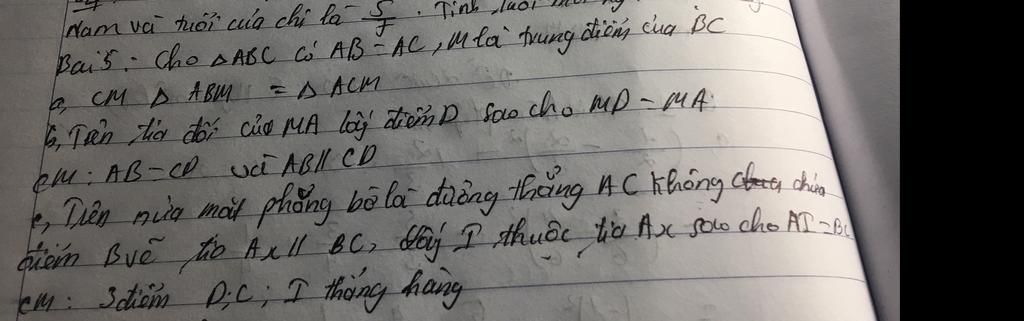 Nam và tuổi của chị là 5/7. Tính tuổi
Bài 5: Cho △ABC có AB = AC, M là trung điểm của BC
a, CM △ ABM = △ ACM
b, Trên tia đối của MA lấy điểm D sao cho MD = MA.
CM: AB = CD và AB // CD
c, Trên nửa mặt phẳng bờ là đường thẳng AC không chứa
điểm B vẽ tia Ax // BC, lấy I thuộc tia Ax sao cho AI = BC
CM: 3 điểm D; C; I thẳng hàng